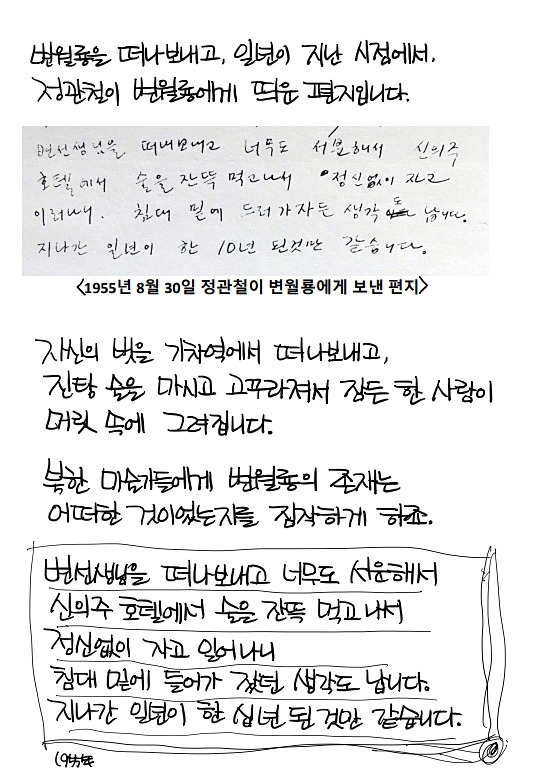 변월룡을 떠나보내고, 일년이 지난 시점에서,
정관철이 변월룡에게 띄운 편지입니다.
변선생님을 떠내보내고 너무도 서분해서 신의주
호텔에서 술을 잔뜩 먹고나서 정신없이 자고
이러나니. 침대 밑에 드러가자든 생각도 납니다.
지나간 일년이 한 10년 된것만 같습니다.
<1955년 8월 30일 정관철이 변월룡에게 보낸 편지>
자신의 벗을 기차역에서 떠나보내고,
진탕 술을 마시고 고꾸라져서 잠든 한 사람이
머릿 속에 그려집니다.
북한 미술가들에게 변월룡의 존재는
어떠한 것이었는지를 짐작하게 하죠.
변선생님을 떠나보내고 너무도 서운해서
신의주 호텔에서 술을 잔뜩 먹고나서
정신없이 자고 일어나니
침대 밑에 들어가 잤던 생각도 납니다.
지나간 일년이 한 십년 된 것만 같습니다.